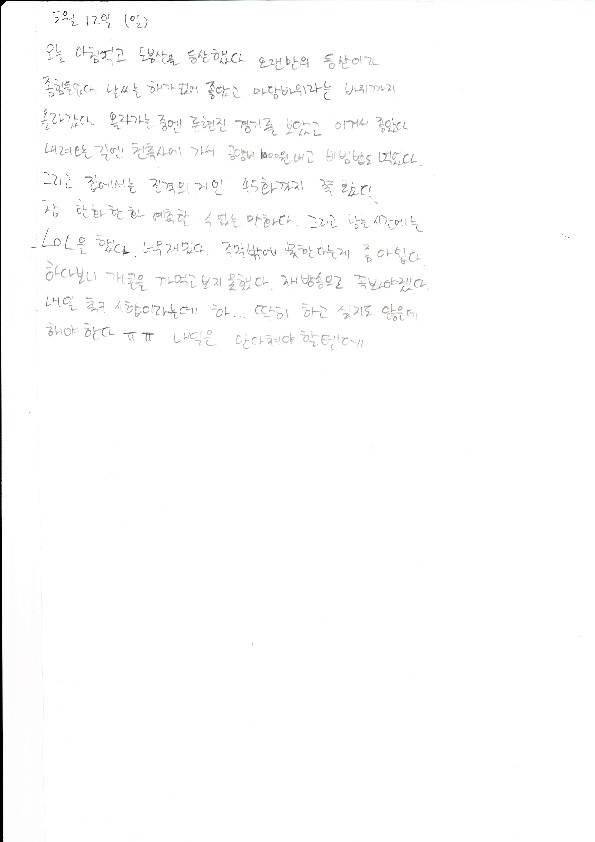 5월 12일 (일)
오늘 아침먹고 도봉산을 등산했다 오랜만의 등산이라
좀 힘들었다 날씨는 해가 없어 좋았고 마당바위라는 바위까지
올라갔다. 올라가는 중엔 류현진 경기를 보았고 이겨서 좋았다
내려오는 길엔 천축사에 가서 공양비 1000원 내고 비빔밥도 먹었다.
그리고 집에서는 진격의 거인 45화까지 쭉 봤다!
참 한화한화 예측할 수 없는 만화다. 그리고 남는 시간에는
LOL을 했다. 너무재밌다. 주말밖에 못한다는게 좀 아쉽다.
하다보니 개콘을 까먹고 보지 못했다. 재방송으로 꼭봐야겠다.
내일 시험이라는데 하... 딱히 하고 싶지도 않은데
해야 한다 ㅠㅠ 내일은 해야 할텐데